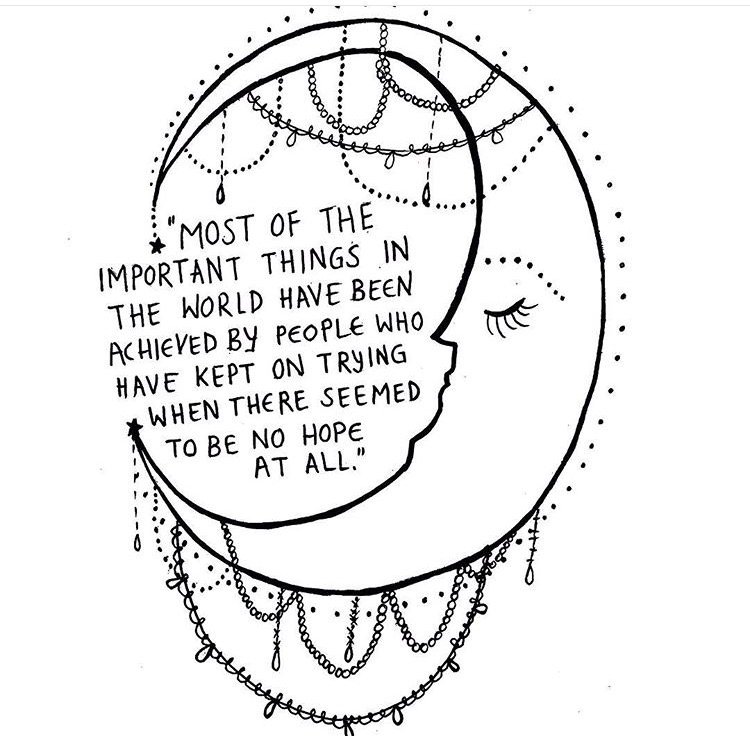 "MOST OF THE
IMPORTANT THINGS IN
THE WORLD HAVE BEEN
ACHIEVED BY PEOPLE WHO
HAVE KEPT ON TRYING
WHEN THERE SEEMED
TO BE NO HOPE
AT ALL."